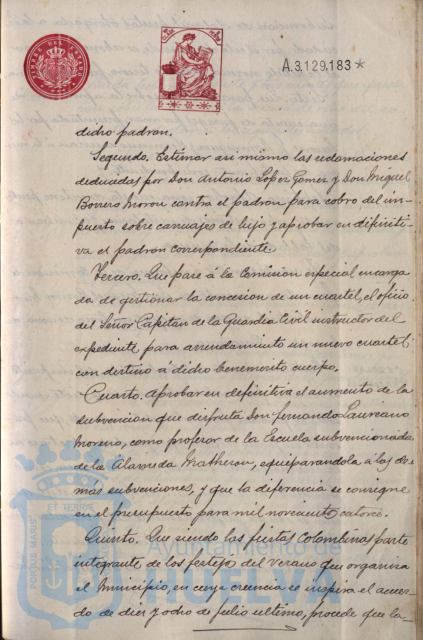 TIMBRE DEL ESTADO
A.3.129.183*
dicho padron.
Segundo. Estimar asi mismo las reclamaciones
deducidas por Don Antonio Lopez Gomez y Don Miguel
Borrero Moron contra el padron para cobro del im-
puesto sobre carruajes de lujo y aprobar en definiti-
va el padron correspondiente.
Tercero. Que pase á la Comision especial encarga
da de gestionar la concesion de un cuartel, el oficio
del Señor Capitan de la Guardia Civil instructor del
expediente para arrendamiento un nuevo cuartel
con destino á dicho benemerito cuerpo.
Cuarto. Aprobar en definitiva el aumento de la
subvencion que disfruta Don Fernando Laureano
Moreno, como profesor de la Escuela subvencionada
de la Alameda Matheson, equiparandola á las de
mas subvenciones, y que la diferencia se consigne
en el presupuesto para mil novecientos catorce.
Quinto. Que siendo las fiestas Colombinas parte
integrante de los festejos del verano que organiza
el Municipio, en cuya creencia se inspira el acuer
do de diez y ocho de Julio ultimo, procede que la-
PORTUS MARIS ET TERRAE
Ayuntamiento de
HUELVA